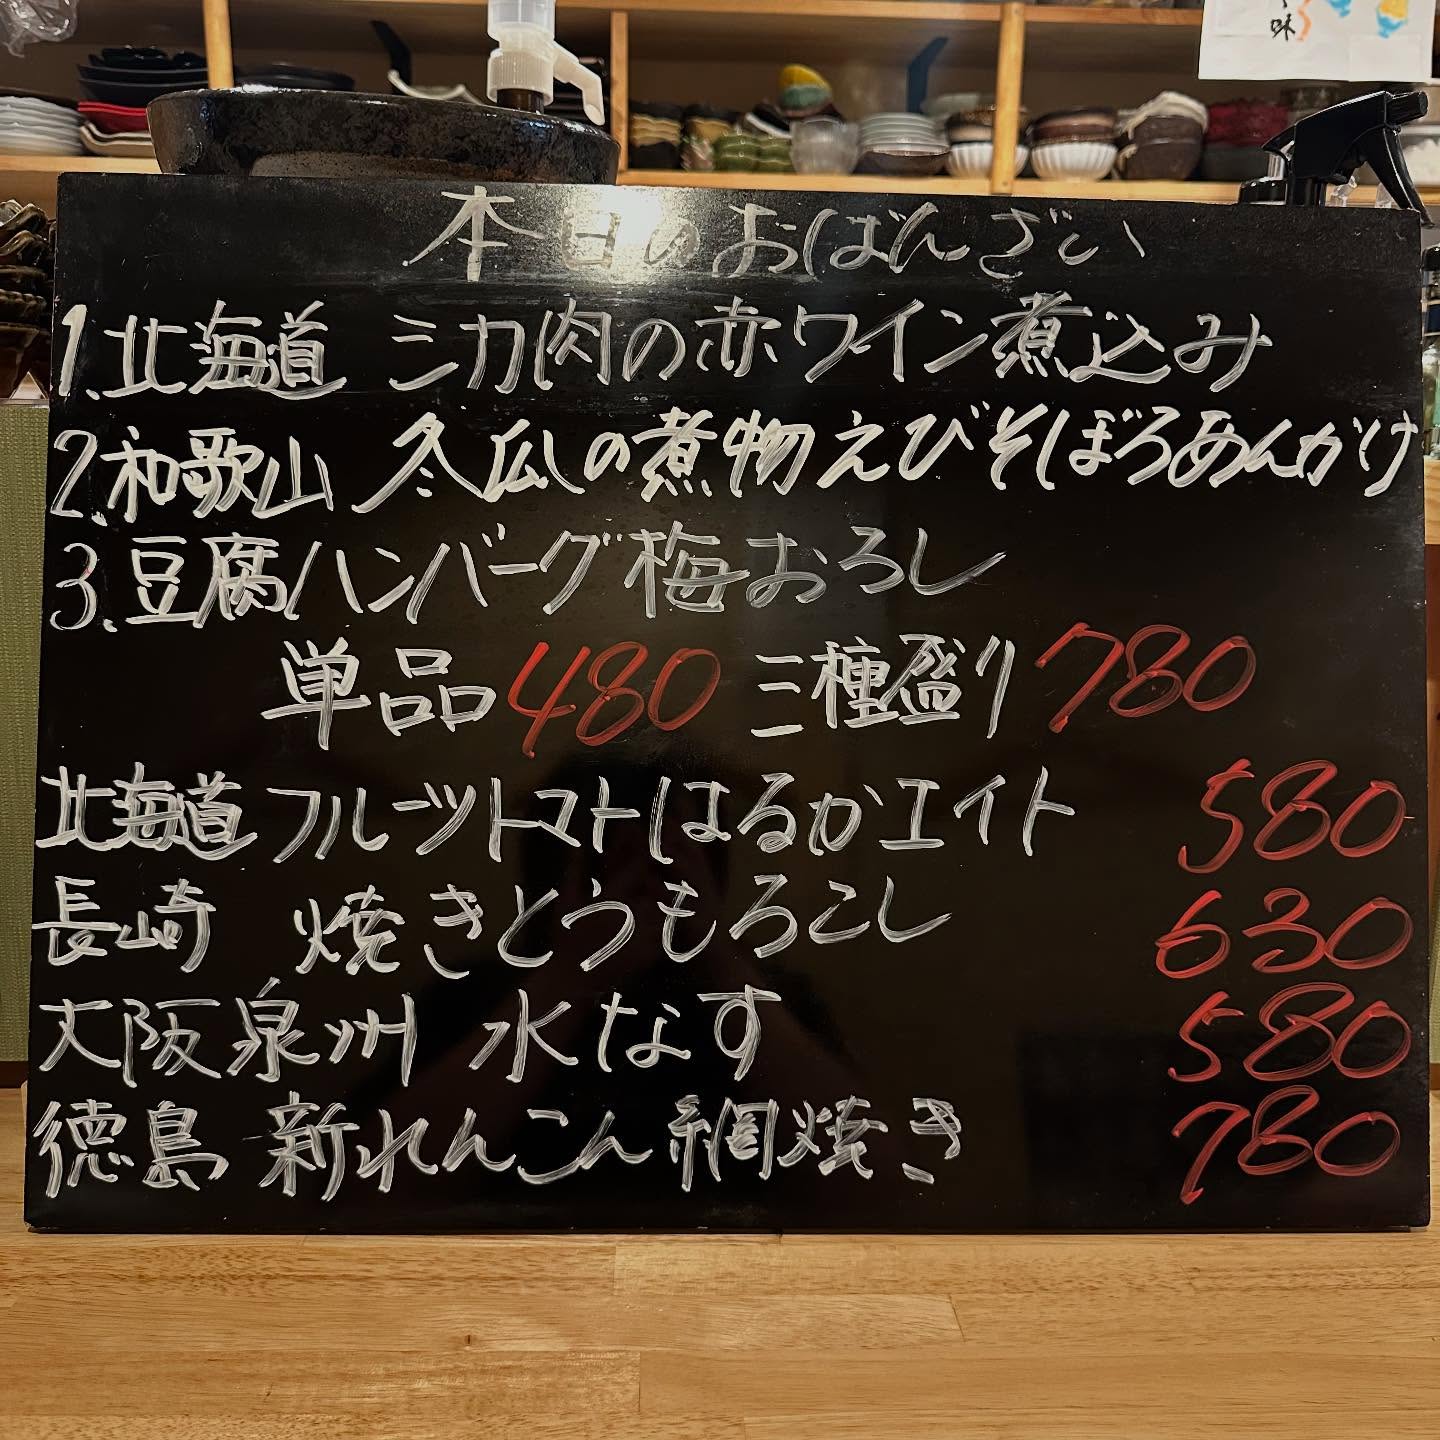 味
本日のおばんざい
1.北海道 シカ肉の赤ワイン煮込み
2.和歌山 冬瓜の煮物えびそぼろあんかけ
3.豆腐ハンバーグ梅おろし
単品480 三種盛り780
北海道 フルーツトマトはるかエイト 580
長崎 焼きとうもろこし 630
大阪泉州 水なす 580
徳島 新れんこん網焼き 780